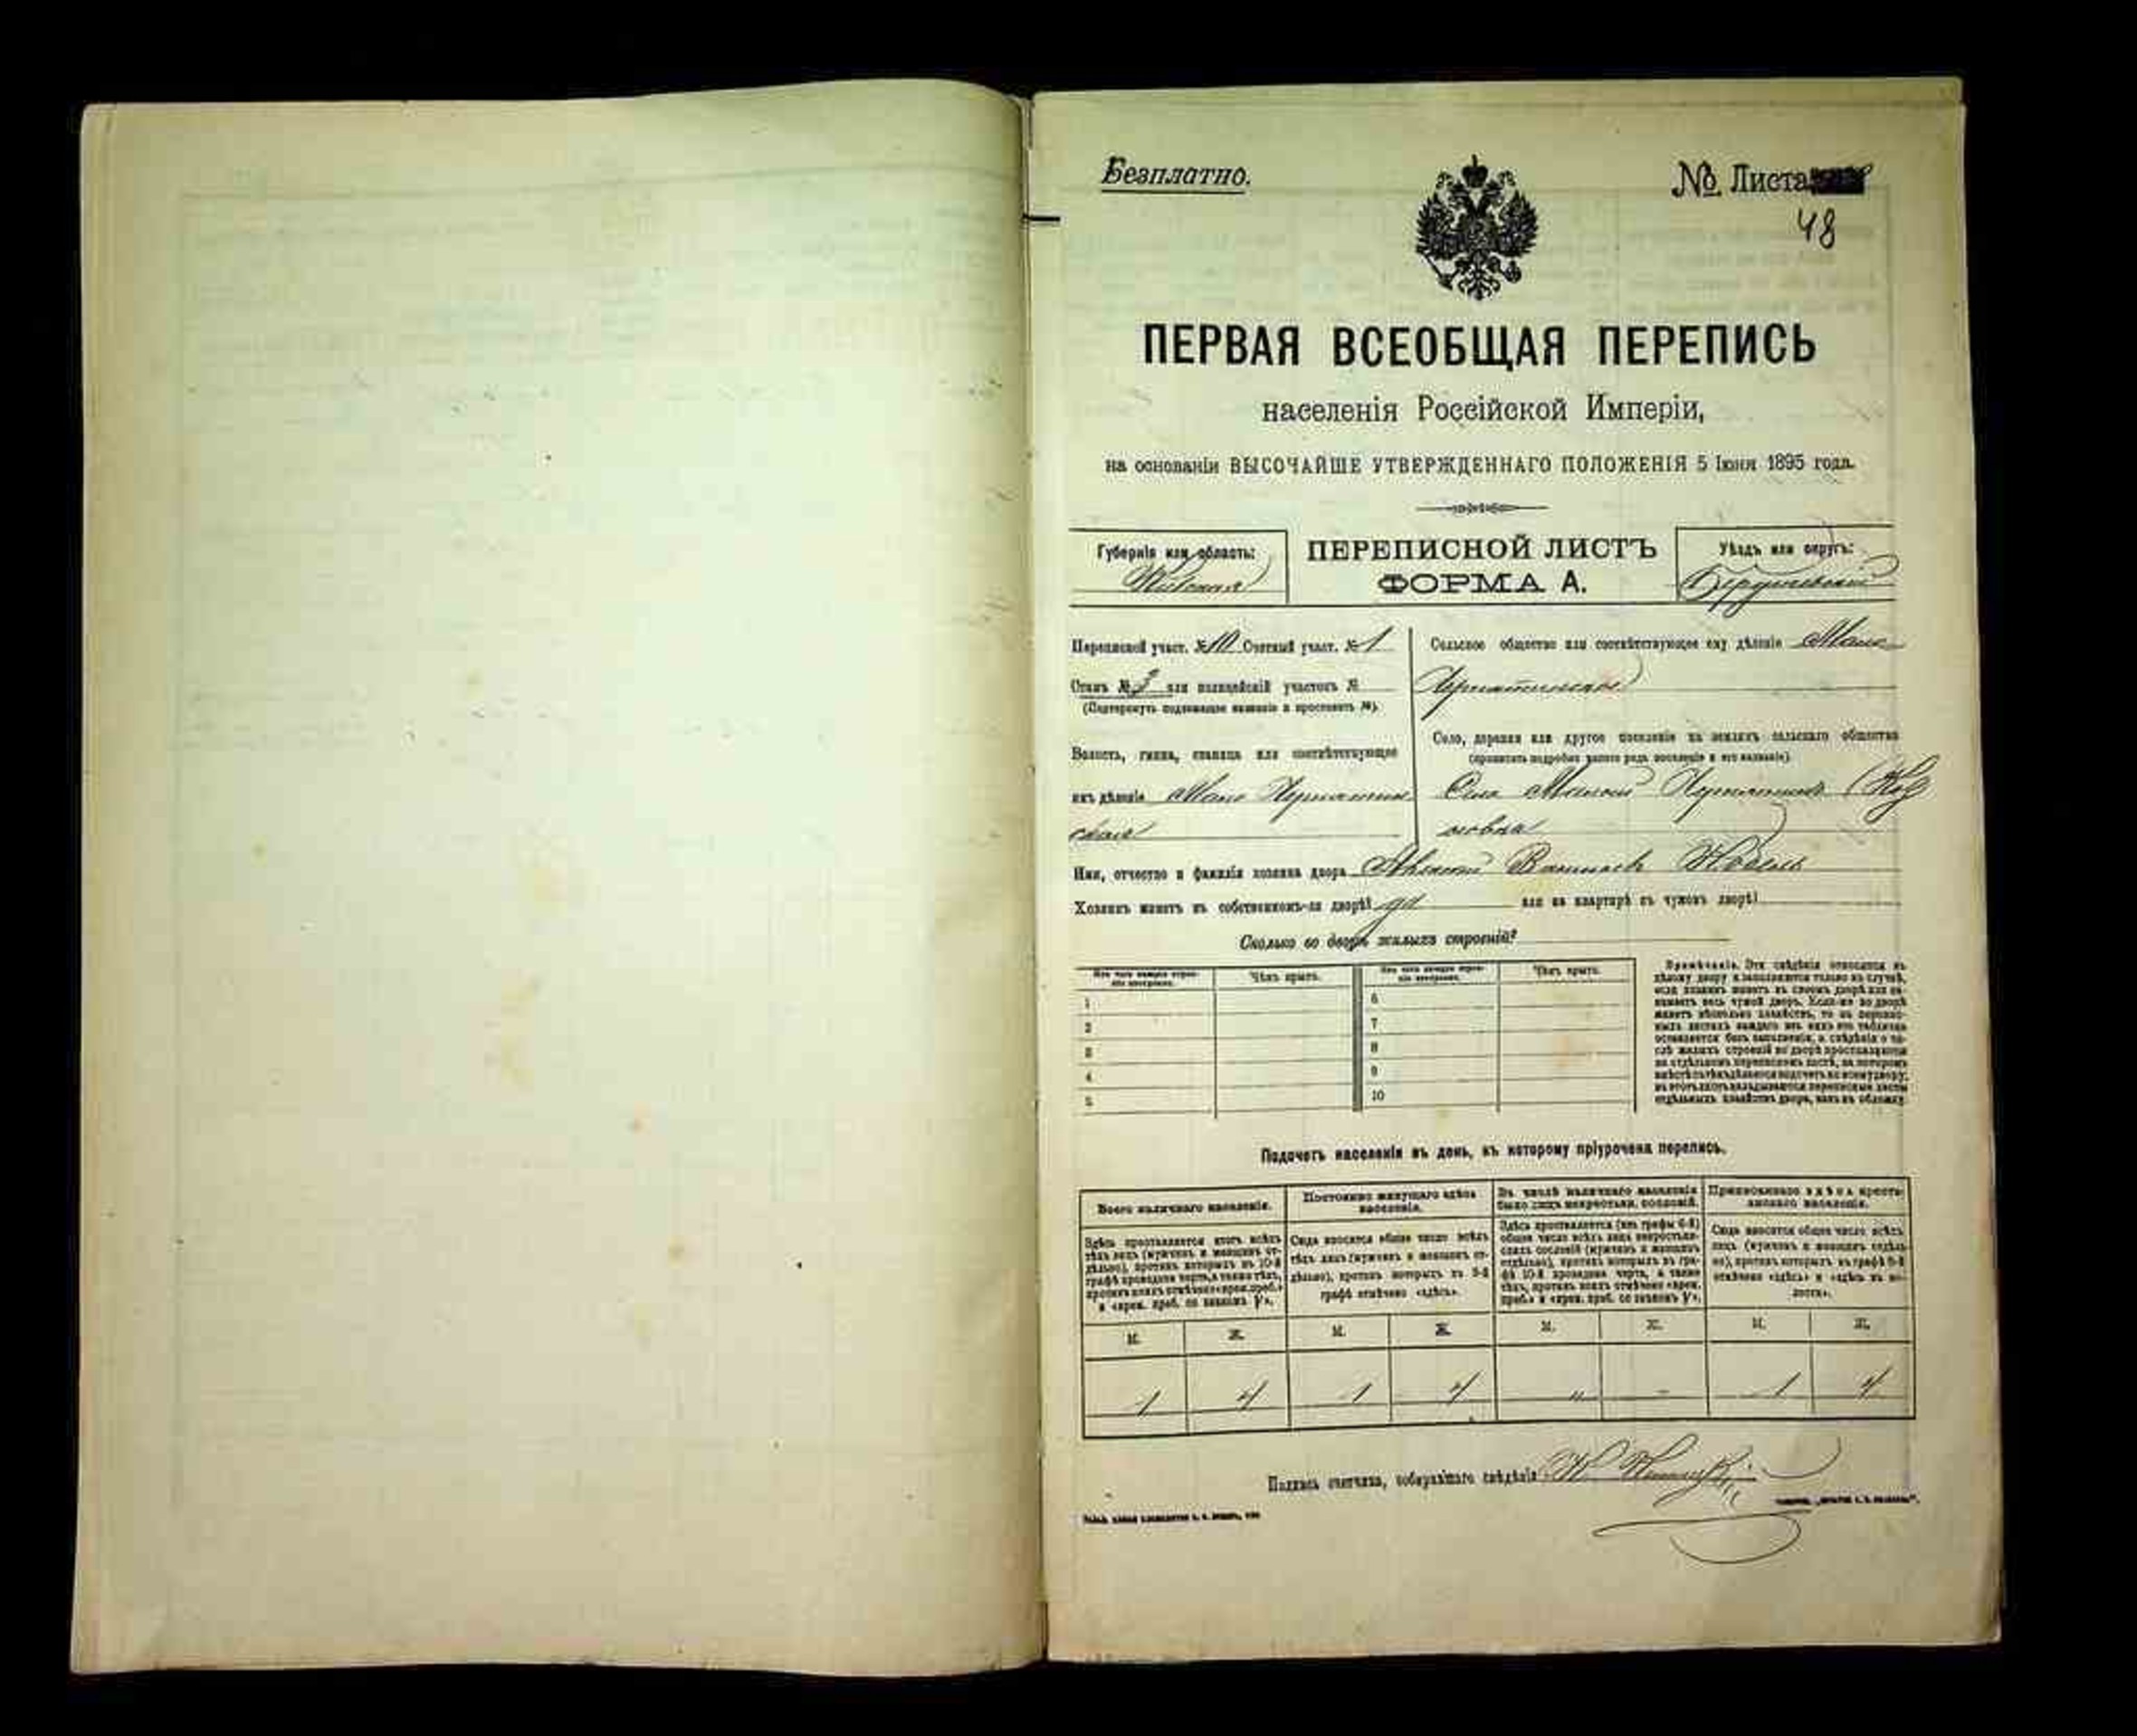 Безплатно.
№ Листа
48
ПЕРВАЯ ВСЕОБЩАЯ ПЕРЕПИСЬ
населенія Россійской Имперіи,
на основаніи ВЫСОЧАЙШЕ УТВЕРЖДЕННАГО ПОЛОЖЕНІЯ 5 Іюня 1895 года.
Губернія или область:
Кіевская
ПЕРЕПИСНОЙ ЛИСТЪ
ФОРМА А.
Уѣздъ или округъ:
Бердичевскій
Переписной участ. № 10 Счетный участ. № 1
Станъ № 3 или полицейскій участокъ №
(Подчеркнуть подлежащее названіе и проставить №).
Волость, гмина, станица или соотвѣтствующее
имъ дѣленіе Мало Чернятин
ская
Сельское общество или соотвѣтствующее ему дѣленіе Мало
Чернятинское
Село, деревня или другое поселеніе на земляхъ сельскаго общества
(прописать подробно какого рода поселеніе и его названіе).
Село Малый Чернятинъ
Имя, отчество и фамилія хозяина двора
Хозяинъ живетъ въ собственномъ-ли дворѣ? да или на квартирѣ въ чужомъ дворѣ?
Сколько во дворѣ жилыхъ строеній?
Изъ чего каждое строеніе построено. Чѣмъ крыто. Изъ чего каждое строеніе построено. Чѣмъ крыто.
1 6
2 7
3 8
4 9
5 10
Примѣчаніе. Эти свѣдѣнія относятся къ
цѣлому двору и заполняются только въ случаѣ,
если хозяинъ живетъ въ своемъ дворѣ или за-
нимаетъ весь чужой дворъ. Если-же во дворѣ
живетъ нѣсколько хозяйствъ, то на перепис-
ныхъ листахъ каждаго изъ нихъ эта табличка
оставляется безъ заполненія, а свѣдѣнія о чи-
слѣ жилыхъ строеній во дворѣ проставляются
на отдѣльномъ переписномъ листѣ, на которомъ
вмѣстѣ съ тѣмъ дѣлается подсчетъ по всему двору;
въ этотъ листъ вкладываются переписные листы
отдѣльныхъ хозяйствъ двора, какъ въ обложку.
Подсчетъ населенія въ день, къ которому пріурочена перепись.
Всего наличнаго населенія.
Здѣсь проставляется итогъ всѣхъ
тѣхъ лицъ (мужчинъ и женщинъ от-
дѣльно), противъ которыхъ въ 10-й
графѣ проведена черта, а также тѣхъ,
противъ коихъ отмѣчено «врем. преб.»
и «врем. преб. со знакомъ V».
Постоянно живущаго здѣсь
населенія.
Сюда вносится общее число всѣхъ
тѣхъ лицъ (мужчинъ и женщинъ от-
дѣльно), противъ которыхъ въ 9-й
графѣ отмѣчено «здѣсь».
Въ числѣ наличнаго населенія
было лицъ некрестьян. сословій.
Здѣсь проставляется (изъ графы 6-й)
общее число всѣхъ лицъ некрестьян-
скихъ сословій (мужчинъ и женщинъ
отдѣльно), противъ которыхъ въ гра-
фѣ 10-й проведена черта, а также
тѣхъ, противъ коихъ отмѣчено «врем.
преб.» и «врем. преб. со знакомъ V».
Приписаннаго здѣсь кресть-
янскаго населенія.
Сюда вносится общее число всѣхъ
лицъ (мужчинъ и женщинъ отдѣль-
но), противъ которыхъ въ графѣ 8-й
отмѣчено «здѣсь» и «здѣсь въ во-
лости».
М. Ж. М. Ж. М. Ж. М. Ж.
1 4 1 4 „ - 1 4
Подпись счетчика, собиравшаго свѣдѣнія